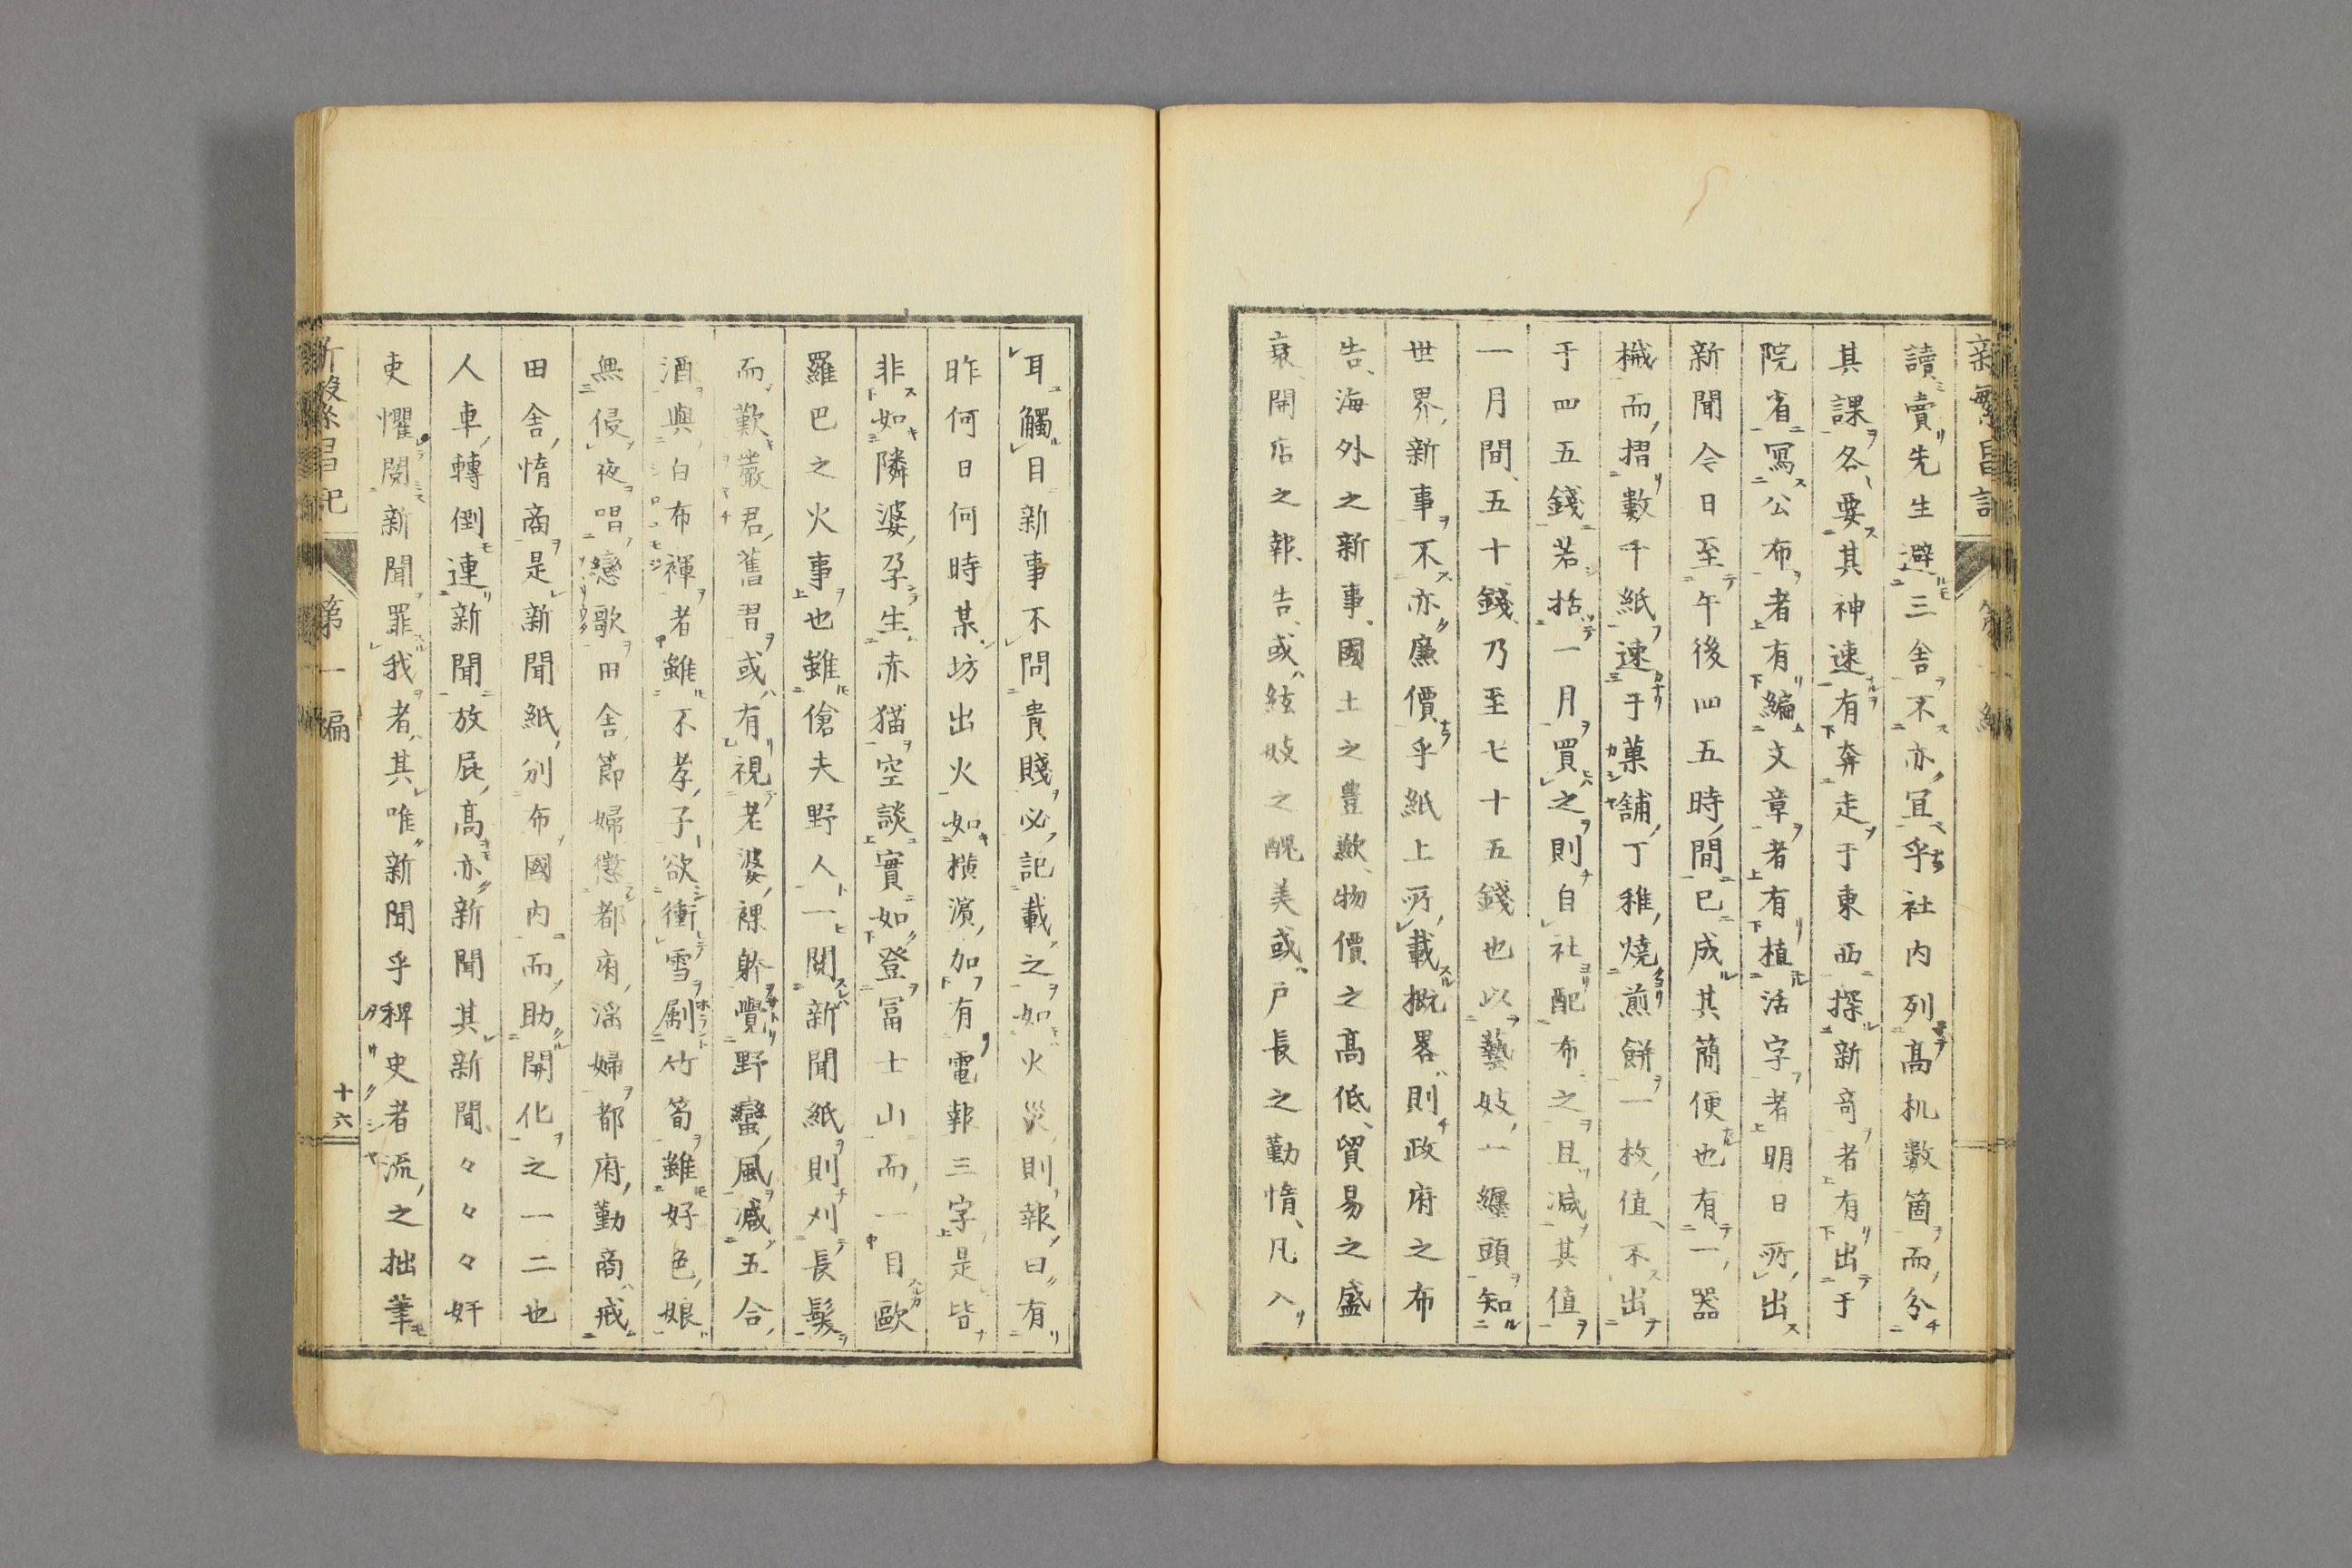 新繁昌記 第一編
讀賣先生避三舍不亦宜乎社内列高机數箇而分
其課各要其神速有奔走于東西探新奇者有出于
院省寫公布者有編文章者有植活字者明日所出
新聞今日至午後四五時間已成其簡便也有一器
械而摺數千紙速于菓舗丁稚燒煎餅一枚値不出
于四五錢若括一月買之則自社配布之且減其値
一月間五十錢乃至七十五錢也以藝妓一纏頭知
世界新事不亦廉價乎紙上所載概畧則政府之布
告海外之新事國土之豊歉物價之高低貿易之盛
衰開店之報告或絃妓之醜美或戸長之勤惰凡入
耳觸目新事不問貴賤必記載之如火災則報曰有
昨何日何時某坊出火如横濱加有電報三字是皆
非如隣婆孕生赤猫空談實如登冨士山而一目歐
羅巴之火事也雖傖夫野人一閲新聞紙則刈長髮
而歎嚴君舊習或有視老婆裸躰覺野蠻風減五合
酒與白布褌者雖不孝子欲衝雪劚竹筍雖好色娘
無侵夜唱戀歌田舍節婦懲都府滛婦都府勤商戒
田舍惰商是新聞紙別布國内而助開化之一二也
人車轉倒連新聞放屁高亦新聞其新聞々々々奸
吏懼閲新聞罪我者其唯新聞乎稗史者流之拙筆
新繁昌記 第一編 十六